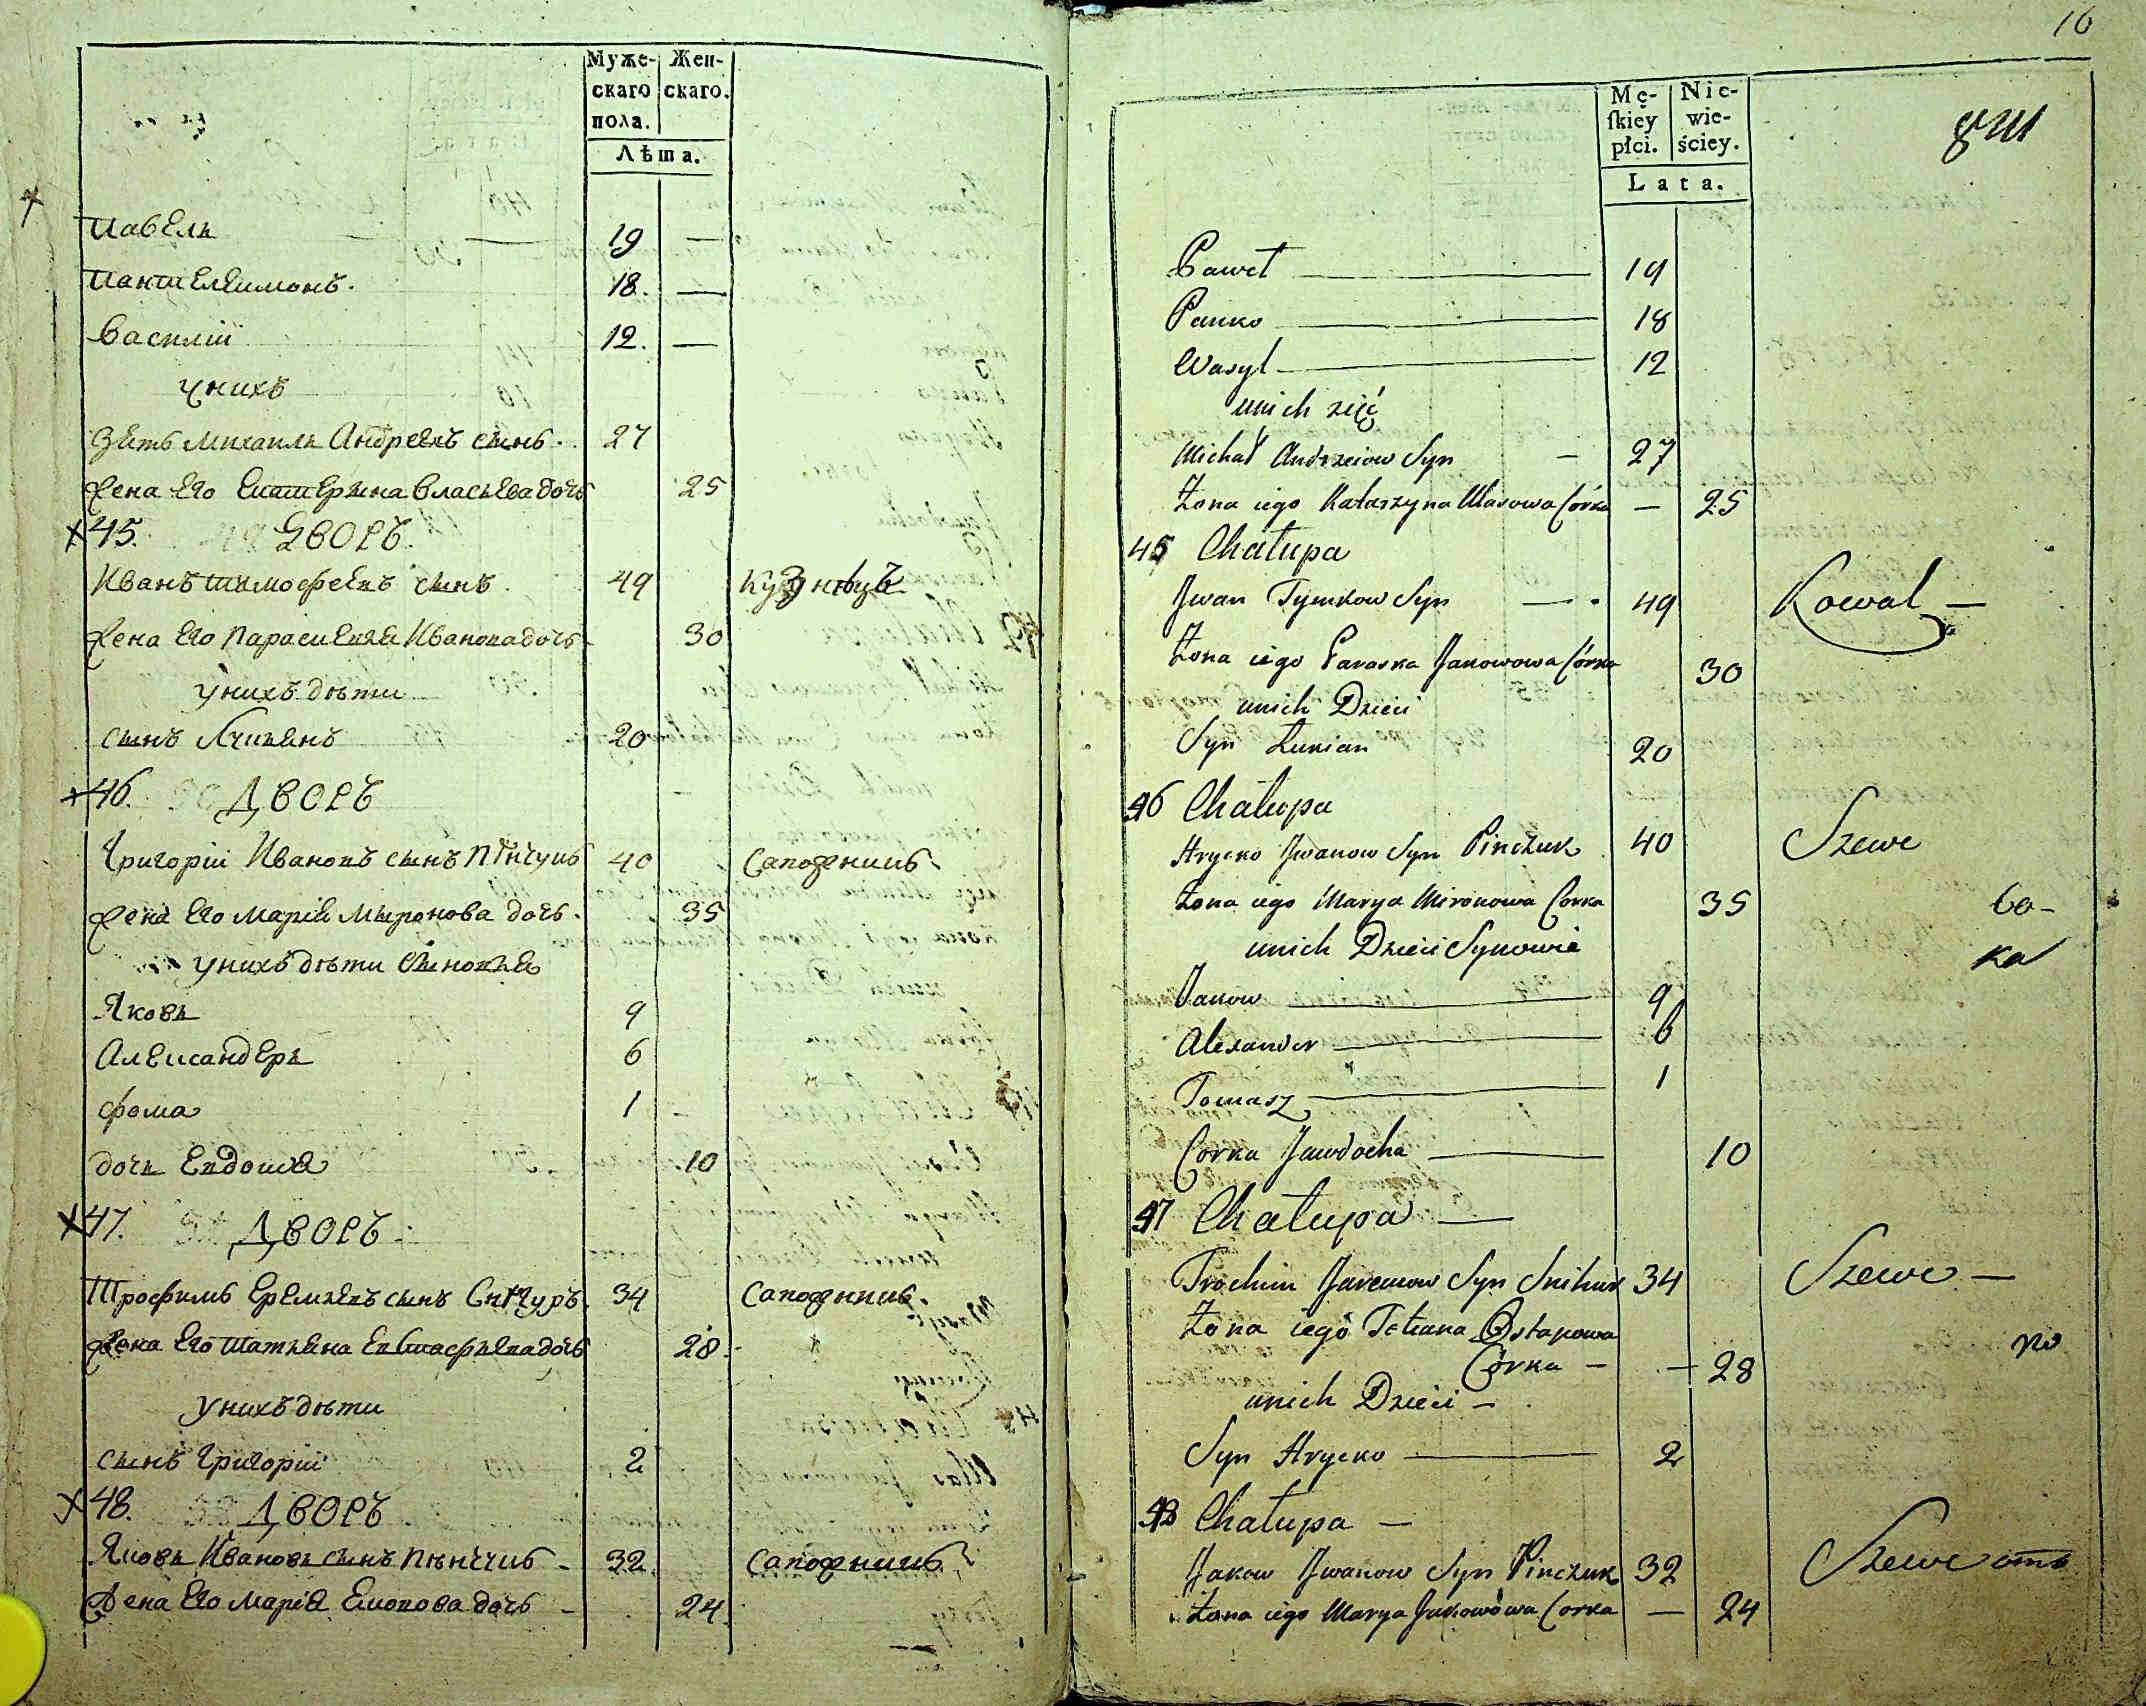 Муже-
скаго
пола.
Жен-
скаго.
Лѣта.
Павелъ 19 —
Пантелеимонъ. 18. —
Василій 12. —
у нихъ
Зять Михаилъ Андреевъ сынъ. 27
Жена его Екатерина Власьева дочь 25
45. Дворъ
Иванъ Тимофеевъ сынъ. 49 Кузнецъ
Жена его Параскевия Иванова дочь 30
у нихъ дѣти
сынъ Лукиянъ 20
46. Дворъ
Григорій Ивановъ сынъ Пѣнчукъ 40 Сапожникъ
Жена его Марія Миронова дочь. 35
у нихъ дѣти сыновья
Яковъ 9
Александеръ 6
Фома 1
дочь Евдокия 10
47. Дворъ
Трофимъ Еремиевъ сынъ Снѣгуръ 34 Сапожникъ
Жена его Татияна Евстафьева дочь 28.
у нихъ дѣти
сынъ Григорій 2
48. Дворъ
Яковъ Ивановъ сынъ Пѣнчукъ 32. Сапожникъ
Жена его Марія Якопова дочь 24
16
Mę-
ſkiey
płci.
Nie-
wie-
ściey.
Lata.
Paweł 19
Panko 18
Wasyl 12
unich zięć
Michał Andrzeiow Syn — 27
Żona iego Katarzyna Własowa Córka — 25
45 Chałupa
Jwan Tymkow Syn — 49 Kowal —
Żona iego Paraska Janowowa Córka 30
unich Dzieci
Syn Łukian 20
46 Chałupa
Hrycko Jwanow Syn Pinczuk 40 Szewc
Żona iego Marya Mironowa Corka 35
unich Dzieci Synowie
ка
Jakow 9
Alexander 6
Tomasz 1
Corka Jawdocha 10
47 Chałupa —
Trochim Jaremow Syn Snihur 34 Szewc —
Żona iego Tetiana Ostapowa
Córka — — 28
по
unich Dzieci —
Syn Hrycko 2
48 Chałupa —
Jakow Jwanow Syn Pinczuk 32 Szewc
Żona iego Marya Jakowowa Corka — 24